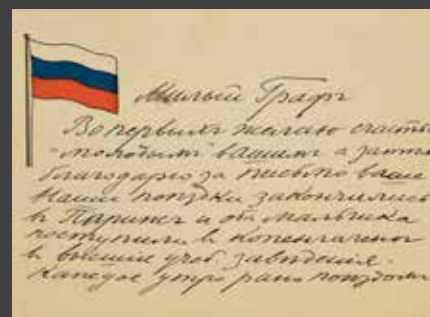 Милый Графъ
Во первыхъ желаю счастья
"молодымъ" вашимъ а затѣмъ
благодарю за письмо ваше
Наши поѣздки закончились
въ Парижѣ и оба мальчика
поступили въ Копенгагенѣ
въ высшія учеб. заведенія.
Каждое утро рано поѣздомъ